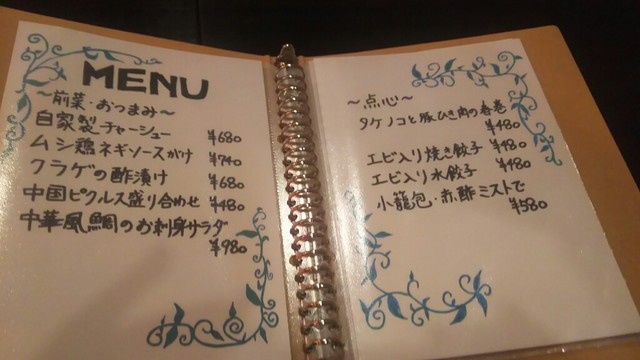 MENU
〜前菜・おつまみ〜
自家製チャーシュー ¥680
ムシ鶏ネギソースがけ ¥740
クラゲの酢漬け ¥680
中国ピクルス盛り合わせ ¥480
中華風鯛のお刺身サラダ
¥980
〜点心〜
タケノコと豚ひき肉の春巻
¥480
エビ入り焼き餃子 ¥480
エビ入り水餃子 ¥480
小籠包・赤酢ミストで
¥580